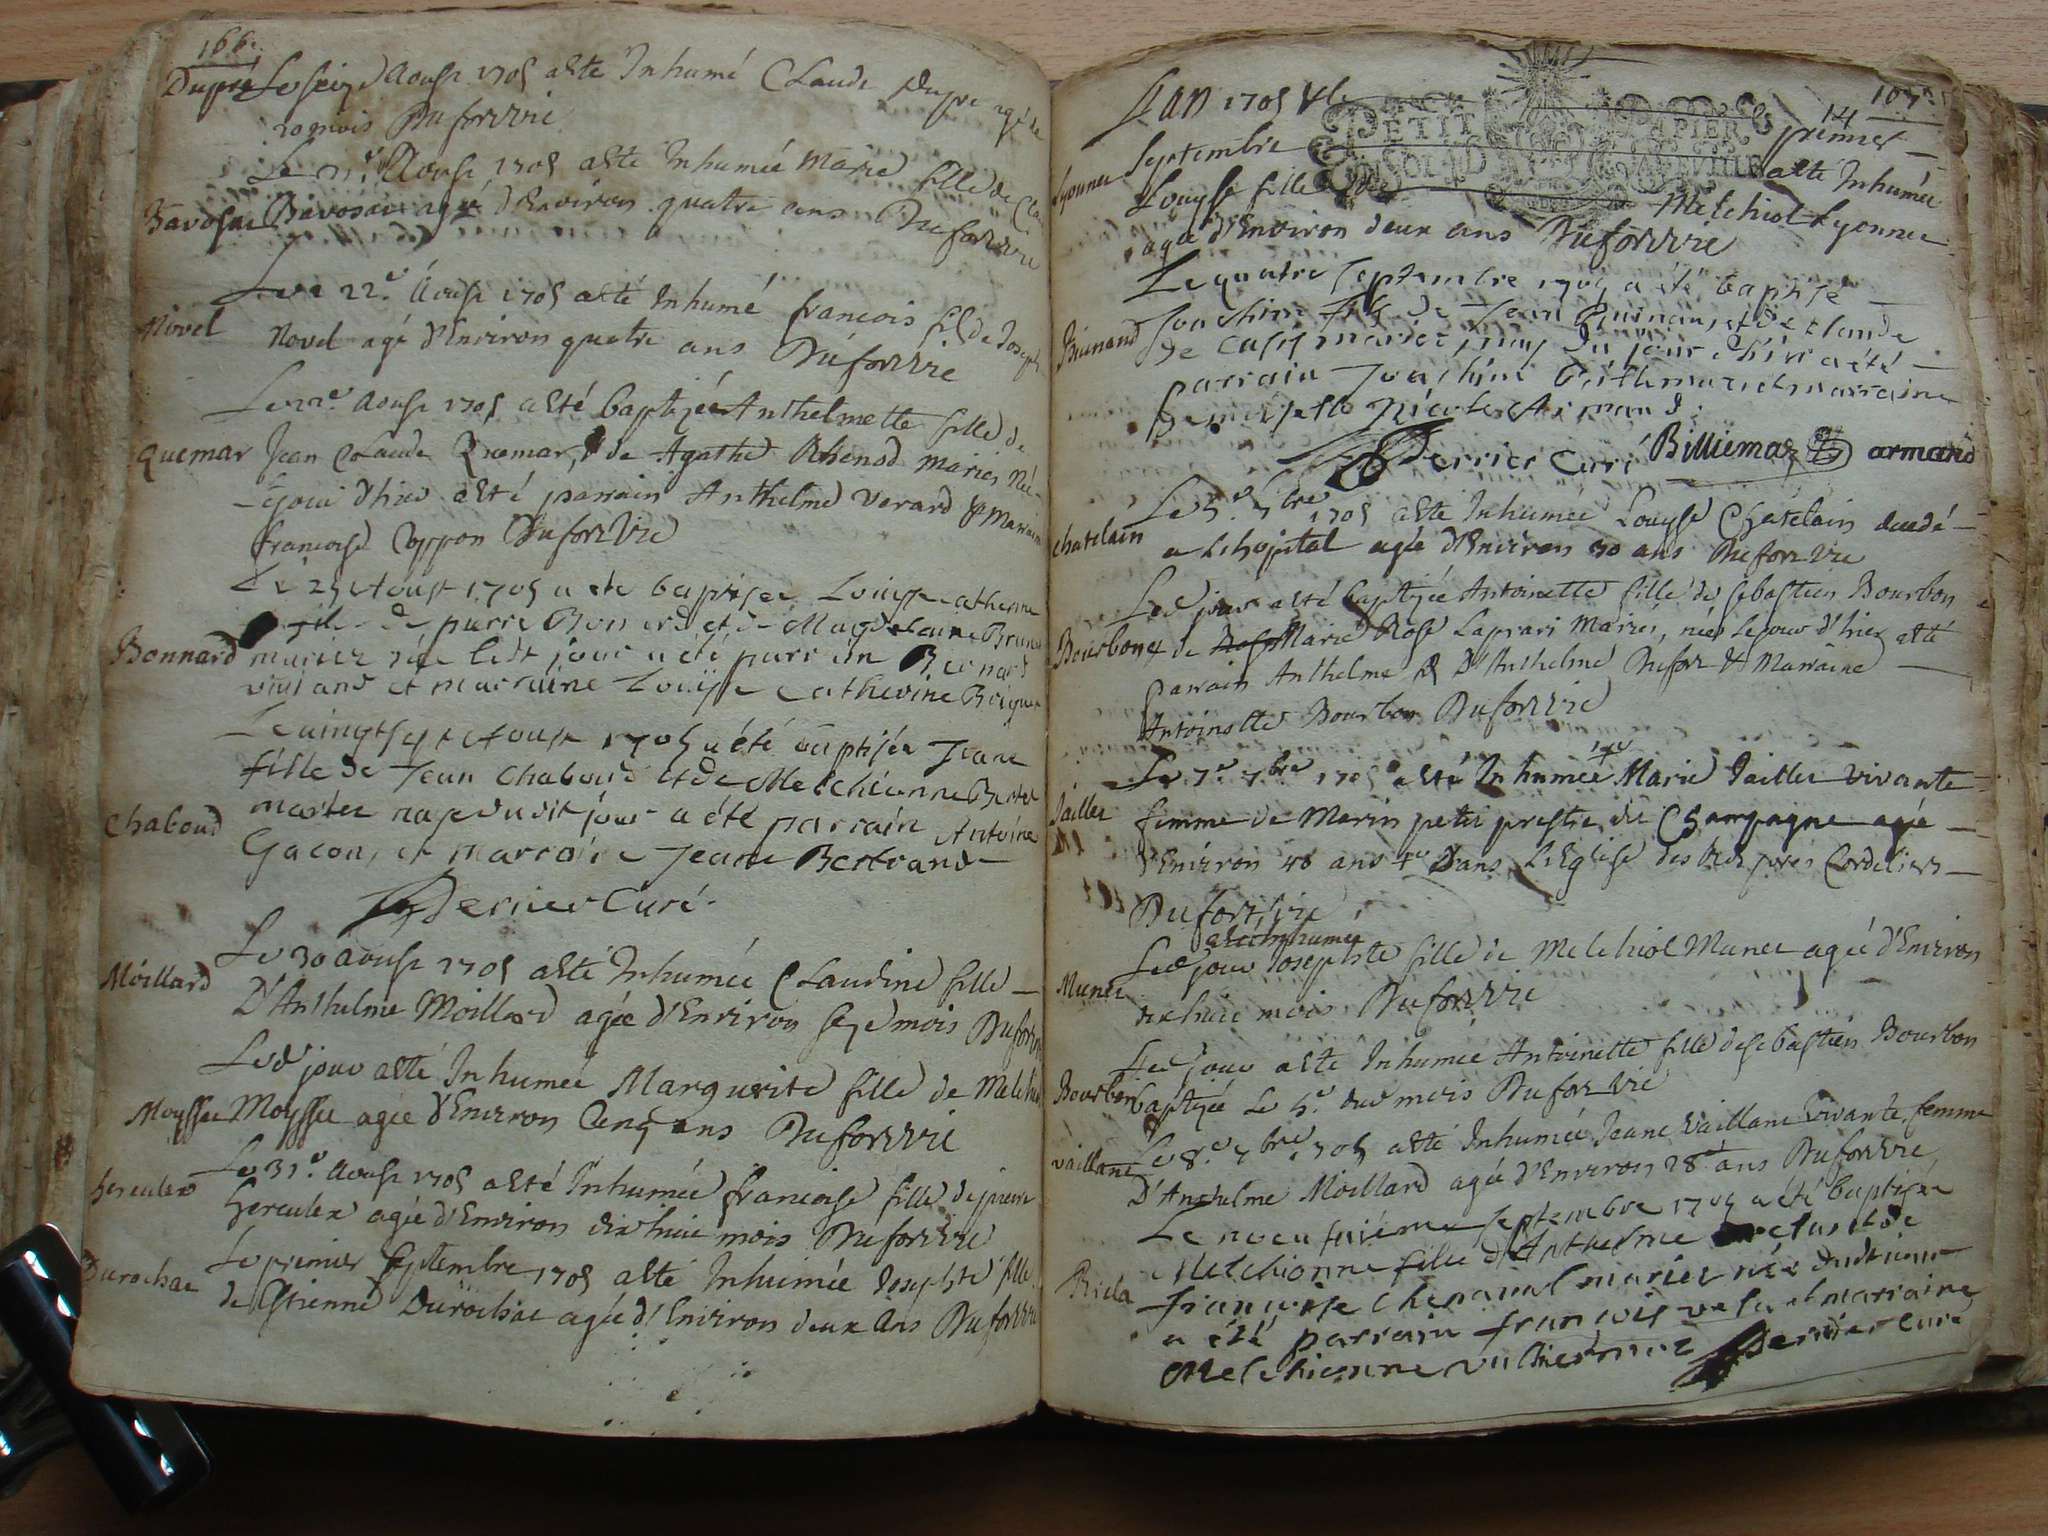 166.
Dupre Le seize Aoust 1705 a esté Inhumé Claude Dupre agé de
20 mois Duforvvie
Le 21e Aoust 1705 a esté Inhumée Marie fille de Cla
Bavosat Bavosat agée d'Environ quatre ans Duforvvie
Le 22e Aoust 1705 a esté Inhumé francois fils de Joseph
Novel Novel agé d'Environ quatre ans Duforvvie
Le 22e Aoust 1705 a esté baptizée Anthelmette fille de
Quemar Jean Claude Quemar, & de Agathe Rhenod mariés Née
le jour d'hier a esté parrain Anthelme Verard & Marraine
francoise Duforvvie
Le 25 Aoust 1705 a éte baptisee Louise catherine
fille de pierre Bonard et de Magdelaine Brun
Bonnard mariez née ledt jour a été parrain Bernard
et marraine Louise Catherine
Le vingt sept Aoust 1705 a été baptisée Jeane
fille de Jean Chaboud et de Melchionne
Chaboud mariez née dudit jour a été parrain Antoine
Gacon, et marraine Jeane Bertrand
Derrier Curé.
Le 30 Aoust 1705 a esté Inhumée Claudine fille
Moillard D'Anthelme Moillard agée d'Environ seze mois Dufor
Led jour a esté Inhumée Marguerite fille de Melchi
Moyssu Moyssu agée d'Environ Cinq ans Duforvvie
Le 31e Aoust 1705 a esté Inhumée francoise fille de pierre
herculex herculex agée d'Environ dix huit mois Duforvvie
Le premier Septembre 1705 a esté Inhumée Josephte fille
Durochat de Estienne Durochat agée d'Environ deux ans Duforvvie
L'an 1705 & le
14 107
PETIT PAPIER
Septembre premier
a esté Inhumée
Lyonnet Louyse fille de Melchiol Lyonnet
agée d'Environ deux ans Duforvvie
Le quatre septembre 1705 a été baptisé
Joachim fils de Jean et de claude
de mariez, nay du jour d'hier a été
parrain Joachim Billiemaz et marraine
Demoiselle Nicole Armand.
Derrier Curé Billiemaz armand
Le 5e 7bre 1705 a esté Inhumée Louyse Chatelain decedé
chatelain a Lhopital agée d'Environ 30 ans Duforvvie
Led jour a esté baptizée Antoinette fille de sebastien Bourbon
Bourbon & de Marie Rose Laprari Mariés, née Le jour d'hier a esté
parrain Anthelme Dufor & Marraine
Antoinette Bourbon Duforvvie
Le 7e 7bre 1705 a esté Inhumée Marie Jaillet vivante
Jaillet femme de Marin petit prestre de Champagne agé
d'Environ 40 ans dans L'Eglise des peres Cordeliers
Duforvvie
a esté Inhumée
Led jour Josephte fille de Melchiol Munet agée d'Environ
Munet dix huit mois Duforvvie
Led jour a esté Inhumée Antoinette fille de sebastien Bourbon
Bourbon baptizée Le 5e dud mois Duforvvie
Le 8e 7bre 1705 a esté Inhumée Jeane Vaillant vivante femme
vaillant D'Anthelme Moillard agée d'Environ 28 ans Duforvvie
Le neuf septembre 1705 a été baptisée
Melchionne fille d'Anthelme et de
françoise Chepanal mariez née dudt jour
a été parrain françois et marraine
Melchionne Derrier Curé